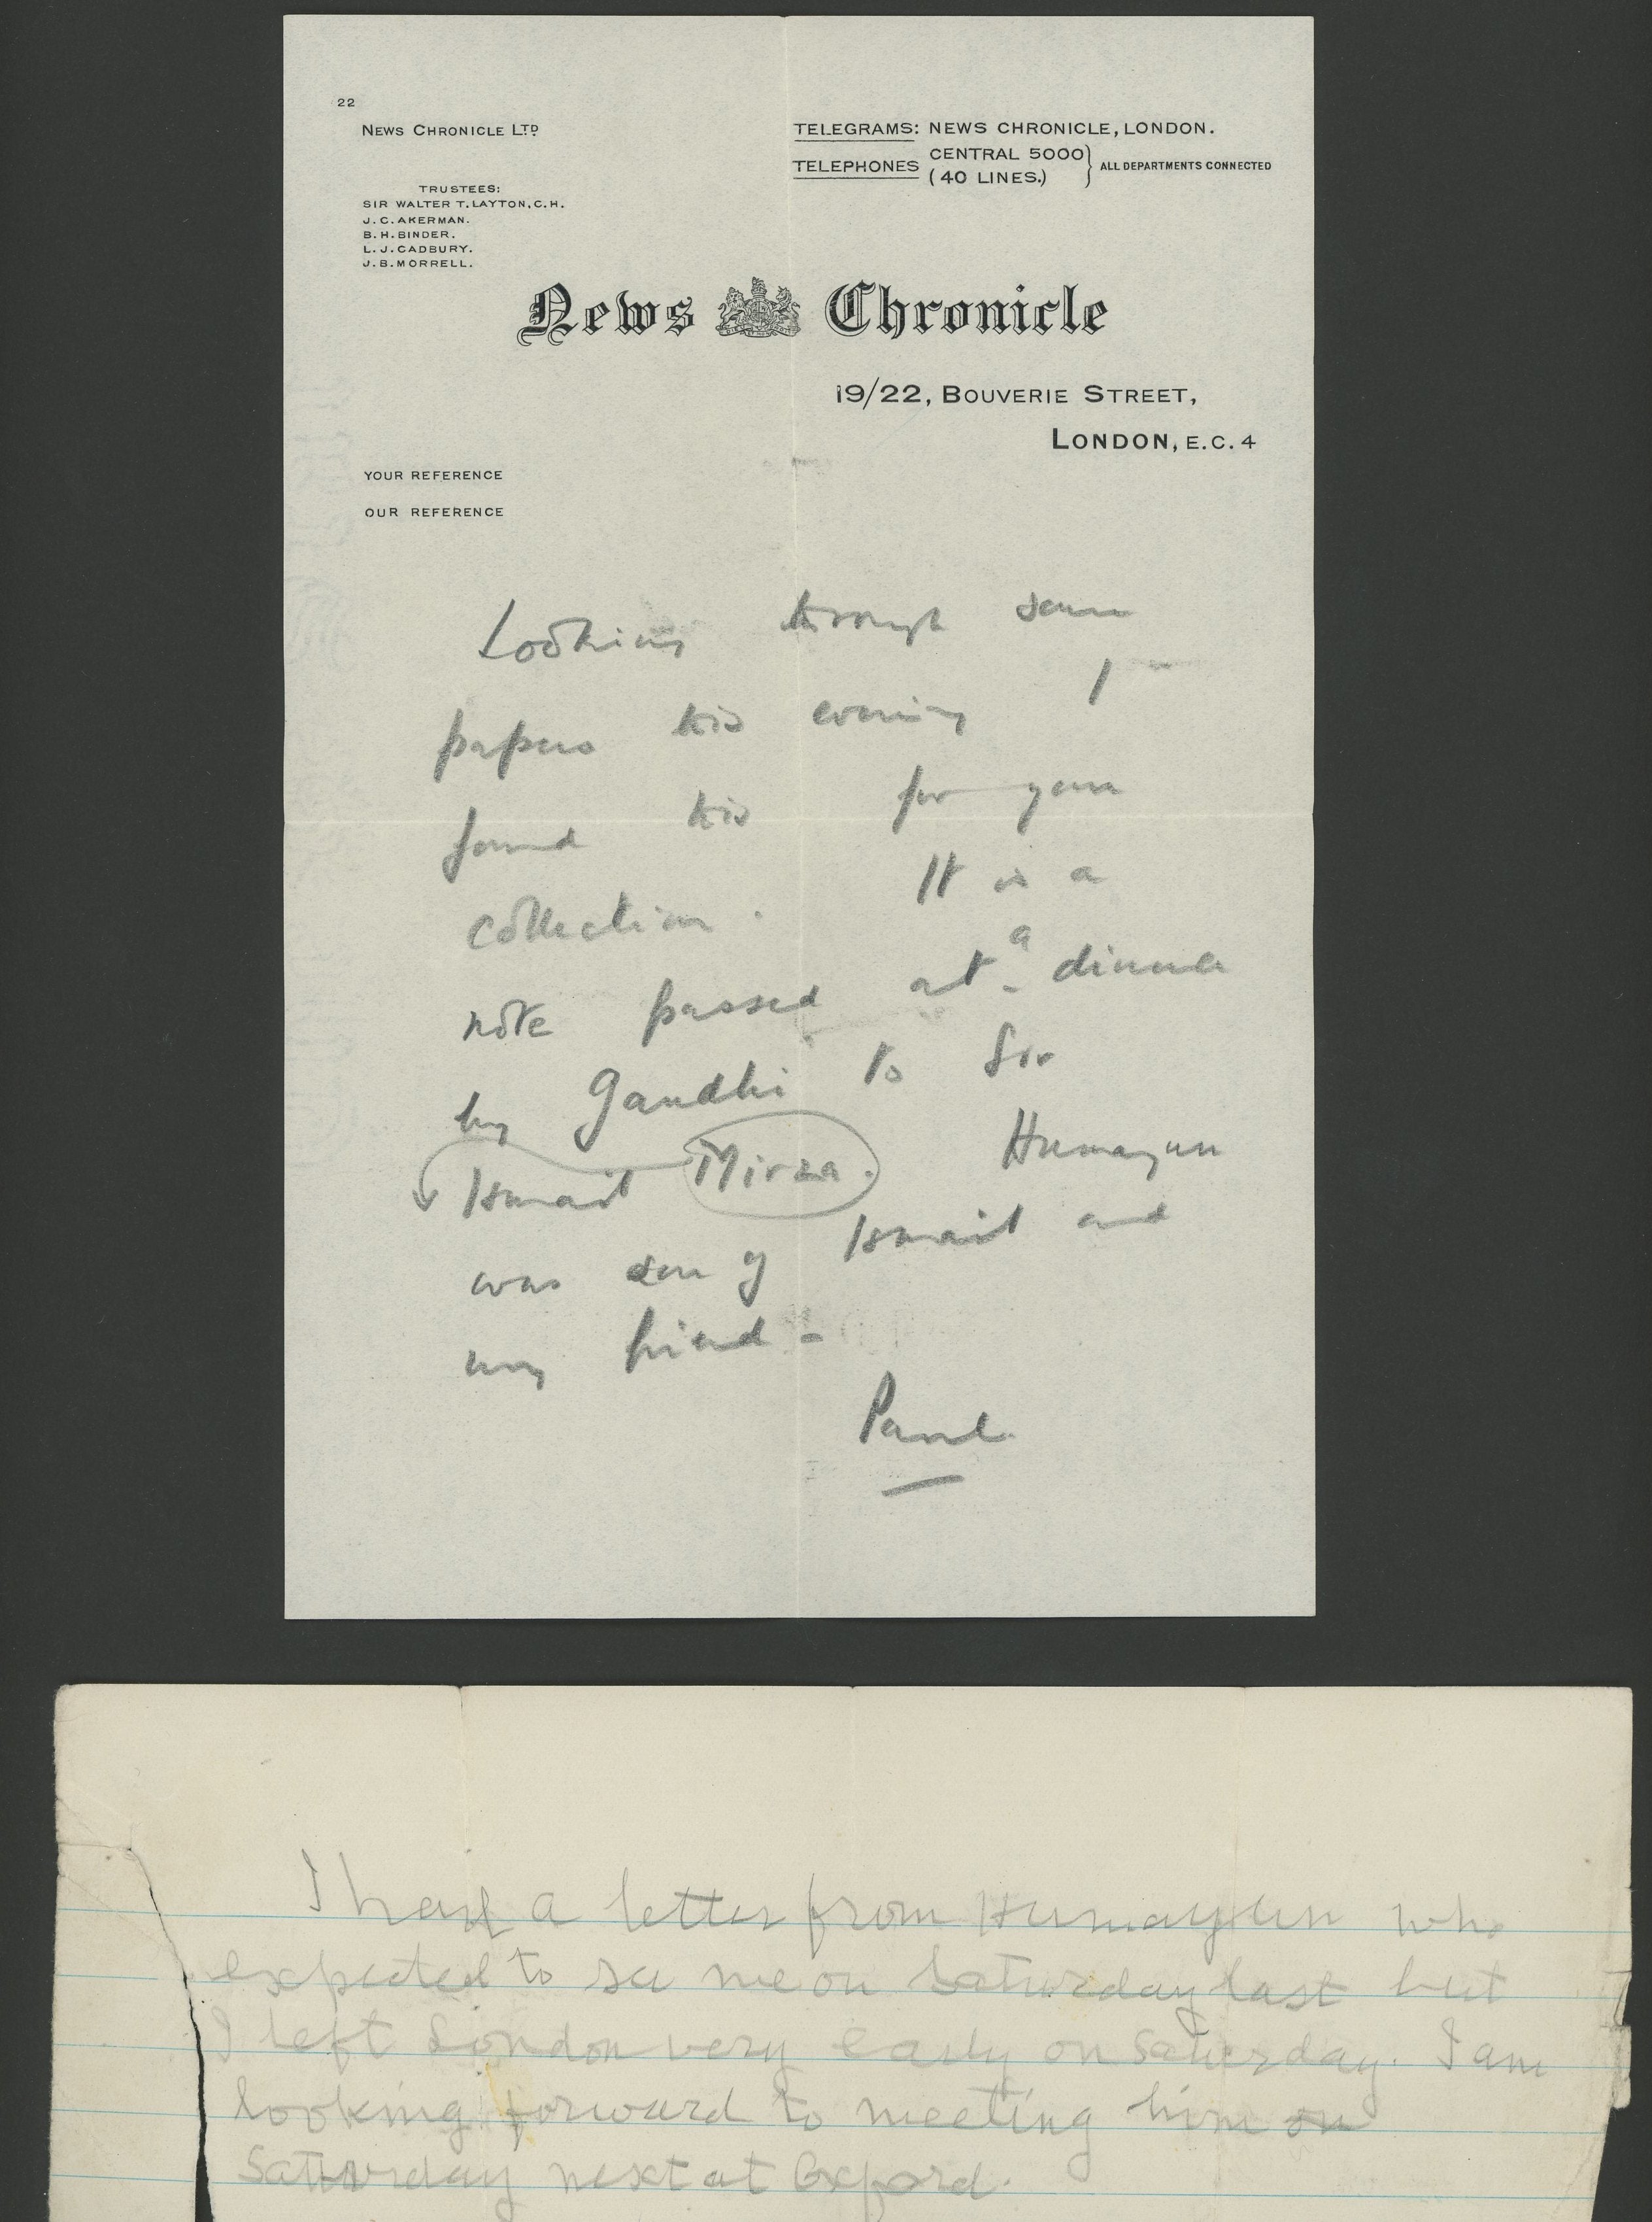 22
NEWS CHRONICLE LTD.
TELEGRAMS: NEWS CHRONICLE, LONDON.
TELEPHONES CENTRAL 5000 (40 LINES.) ALL DEPARTMENTS CONNECTED
TRUSTEES:
SIR WALTER T. LAYTON, C.H.
J. C. AKERMAN.
B. H. BINDER.
L. J. CADBURY.
J. B. MORRELL.
News Chronicle
19/22, BOUVERIE STREET,
LONDON, E.C. 4
YOUR REFERENCE
OUR REFERENCE
Looking through some
papers this evening I
found this for your
collection. It is a
note passed at a dinner
by Gandhi to Sir
Ismail Mirza. Humayun
was son of Ismail and
my friend -
Paul.
I had a letter from Humayun who
expected to see me on Saturday last but
I left London very early on Saturday. I am
looking forward to meeting him on
Saturday next at Oxford.